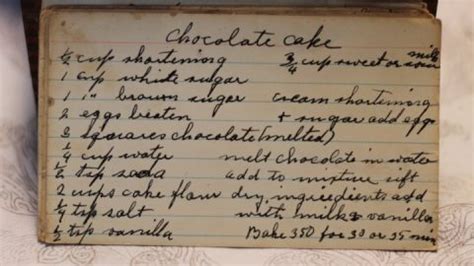 Chocolate Cake
½ cup shortening ¾ cup sweet or sour milk
1 cup white sugar
1 " brown sugar cream shortening
2 eggs beaten + sugar add eggs
3 squares chocolate (melted)
¼ cup water melt chocolate in water
½ tsp soda add to mixture sift
2 cups cake flour dry, ingredients add
¼ tsp salt with milk & vanilla
½ tsp vanilla Bake 350 for 30 or 35 min